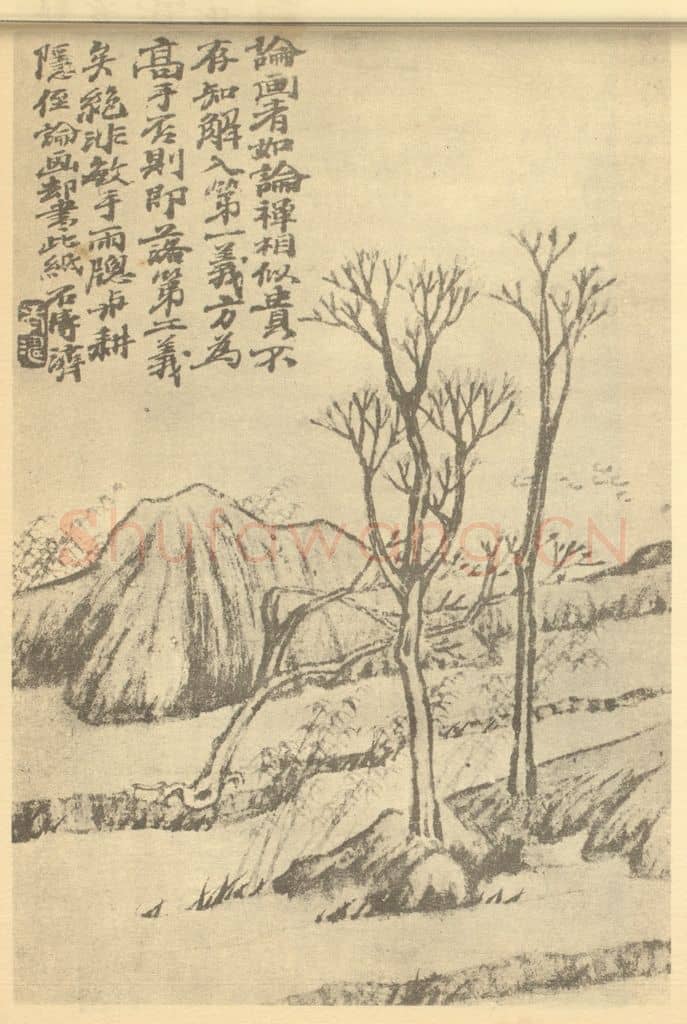 論画者如論禪相似貴不
存知解入第一義方為
高手否則即落第二義
矣絶非敏手雨牕与耕
隱侄論画却書此紙石濤濟
Shufawang.CN